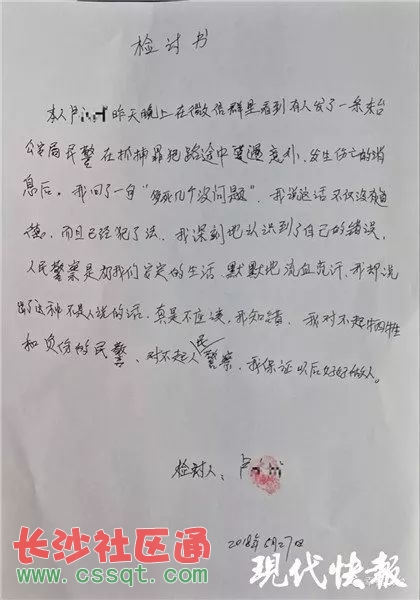 检讨书
本人卢 昨天晚上在微信群里看到有人发了一条东台
公安局民警在抓捕罪犯路途中遭遇意外,发生伤亡的消
息后。我回了一句“多死几个没问题”,我说这话不仅没有道
德,而且已经犯了法,我深刻地认识到了自己的错误,
人民警察是为我们安定的生活,默默地流血流汗,我却说
出了这种不是人说的话,真是不应该,我知错,我对不起牺牲
和负伤的民警,对不起人民警察,我保证以后好好做人。
检讨人:卢
2018年5月27日
长沙社区通
www.cssqt.com
现代快报